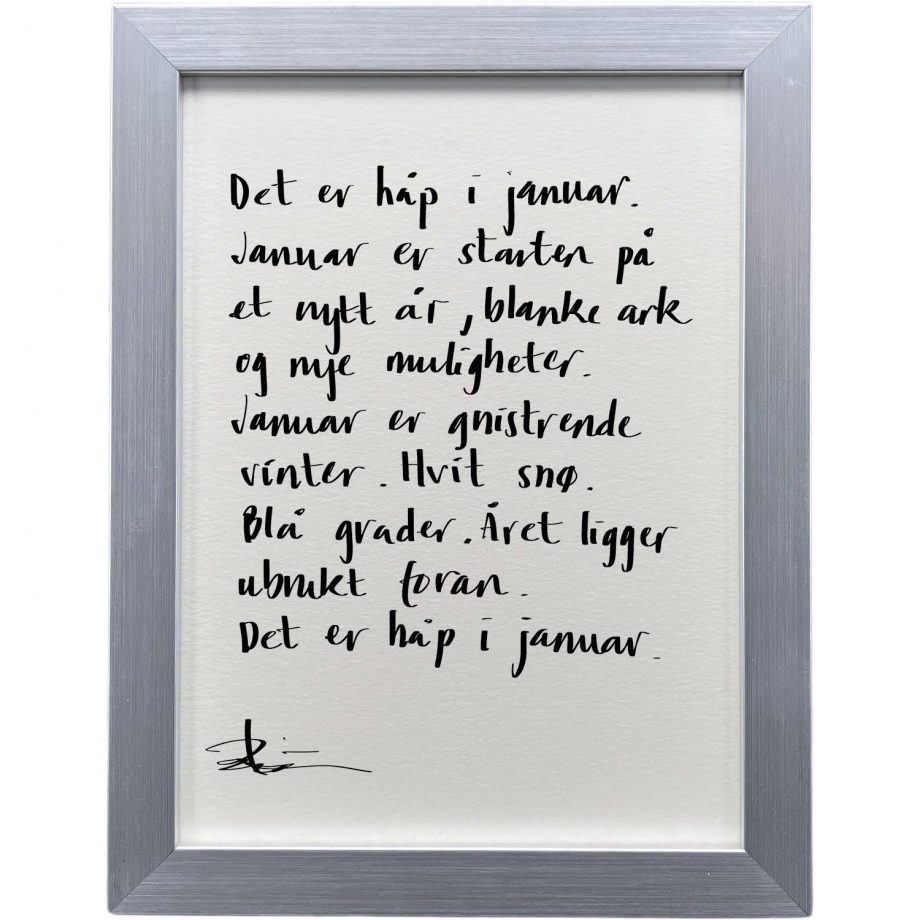 Det er håp i januar.
Januar er starten på
et nytt år, blanke ark
og nye muligheter.
Januar er gnistrende
vinter. Hvit snø.
Blå grader. Året ligger
ubrukt foran.
Det er håp i januar.